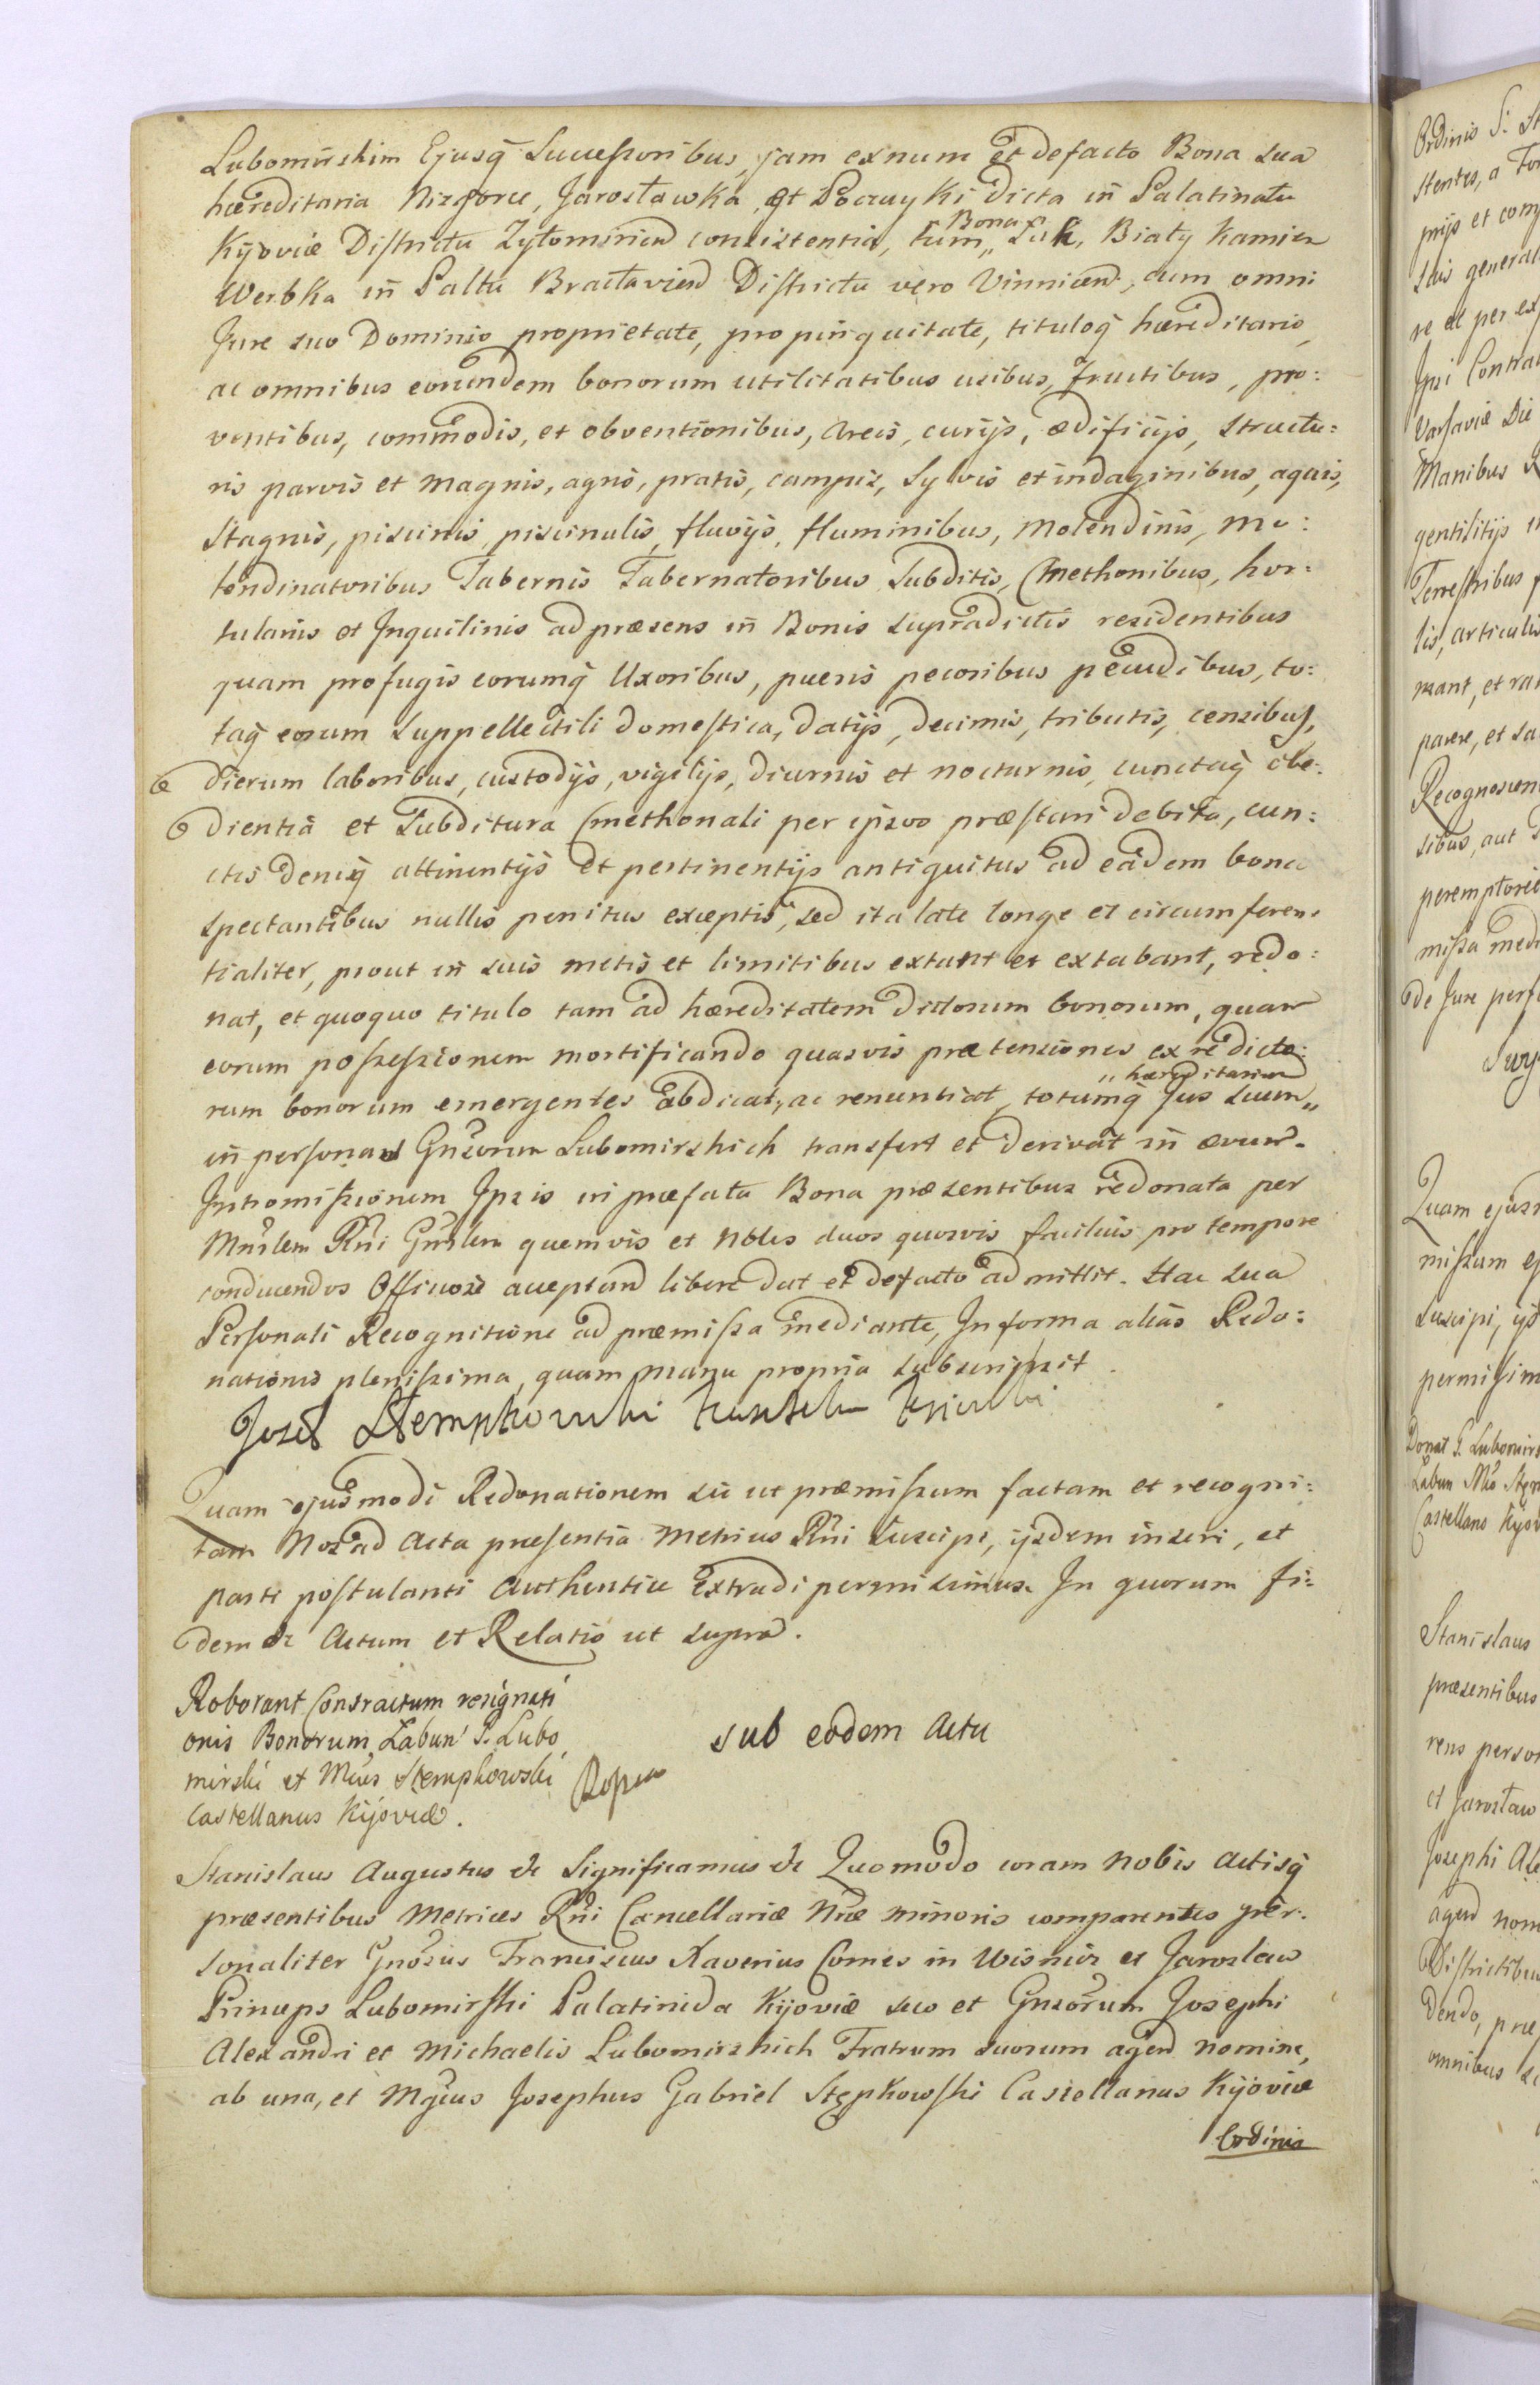 Lubomirskim Ejusq̃ Successoribus, jam ex num et defacto Bona sua
hæreditaria Nizgorce, Jarosławka, et Poczuyki dicta in Palatinatu
Kijoviæ Districtu Zytomirien̄ consistentia, tum „ Bona „ Łuk, Biały Kamien
Werbka in Palttu Bracłavien̄ Districtu vero Vinnicen̄, cum omni
Jure suo Dominio proprietate, propinquitate, tituloq̃ hæreditario,
ac omnibus eorundem bonorum utilitatibus usibus, fructibus, pro:
ventibus, commodis, et obventionibus, areis, curijs, ædificijs, structu:
ris parvis et magnis, agris, pratis, campis, Sylvis et indaginibus, aquis,
Stagnis, piscinis, piscinulis, fluvijs, fluminibus, molendinis, mo:
lendinatoribus Tabernis Tabernatoribus Subditis, Cmethonibus, hor:
tulanis et Inquilinis ad præsens in Bonis supradictis residentibus
quam profugis eorumq̃ Uxoribus, pueris pecoribus pecudibus, to:
taq̃ eorum Suppellectili domestica, datijs, decimis, tributis, censibus,
dierum laboribus, custodijs, vigilijs, diurnis et nocturnis, cunctaq̃ obe:
dientia et Subditura Cmethonali per ipsos præstari debita, cun:
ctis deniq̃ attinentijs et pertinentijs antiquitus ad eadem bona
spectantibus nullis penitus exceptis, sed ita late longe et circumferen:
tialiter, prout in suis metis et limitibus extant et extabant, redo:
nat, et quoquo titulo tam ad hæreditatem dictorum bonorum, quam
eorum possessionem mortificando quasvis prætensiones ex re dicto:
rum bonorum emergentes abdicat, ac renuntiat, totumq̃ Jus suum „ hæreditarium „
in personas Gnsorum Lubomirskich transfert et derivat in ævum.
Intromissionem Ipsis in præfata Bona præsentibus redonata per
Mnrlem Rni Gnrlem quemvis et Nbles duos quosvis facilius pro tempore
conducendos Officiose acceptand libere dat et defacto admittit. Hac sua
Personali Recognitione ad præmissa mediante, In forma alias Redo:
nationis plenissima, quam manu propria subscripsit.
Josef Stempkowski
Quam ejusmodi Redonationem sic ut præmissum factam et recogni:
tam Nos ad Acta præsentia Metrices Rni suscipi, ijsdem inseri, et
parti postulanti authentice extradi permisimus. In quorum fi:
dem &c Actum et Relatio ut supra.
Roborant Contractum resignati
onis Bonorum Łabun' P. Lubo
mirski et Mcus Stempkowski
Castellanus Kijoviæ.
sub eodem Actu
Stanislaus Augustus &c Significamus &c Quomodo coram nobis Actisq̃
præsentibus Metrices Rni Cancellariæ Nræ minoris comparentes per:
sonaliter Gnosus Franciscus Xaverius Comes in Wisnicz et Jaroslaw
Princeps Lubomirski Palatinida Kijoviæ suo et Gnsorum Josephi
Alexandri et Michaelis Lubomirskich Fratrum suorum agend nomine,
ab una, et Mgcus Josephus Gabriel Stępkowski Castellanus Kijoviæ
Ordinis
Ordinis S.
stentes, a
prijs et com
suis general
re et per ex
Ipsi Contra
Varsaviæ Die
Manibus
gentilitijs
Terrestribus
lis, articulis
mant, et
parere, et
Recognoscen
sibus, aut
peremptorie
missa medi
de Jure perf
Quam ejusm
missum
suscipi, ijs
permisim
Donat P. Lubomirs
Łabun
Castellano Kijov
Stanislaus
præsentibus
rens person
et Jarosław
Josephi Ale
agend nom
Districtibus
dendo, præ
omnibus